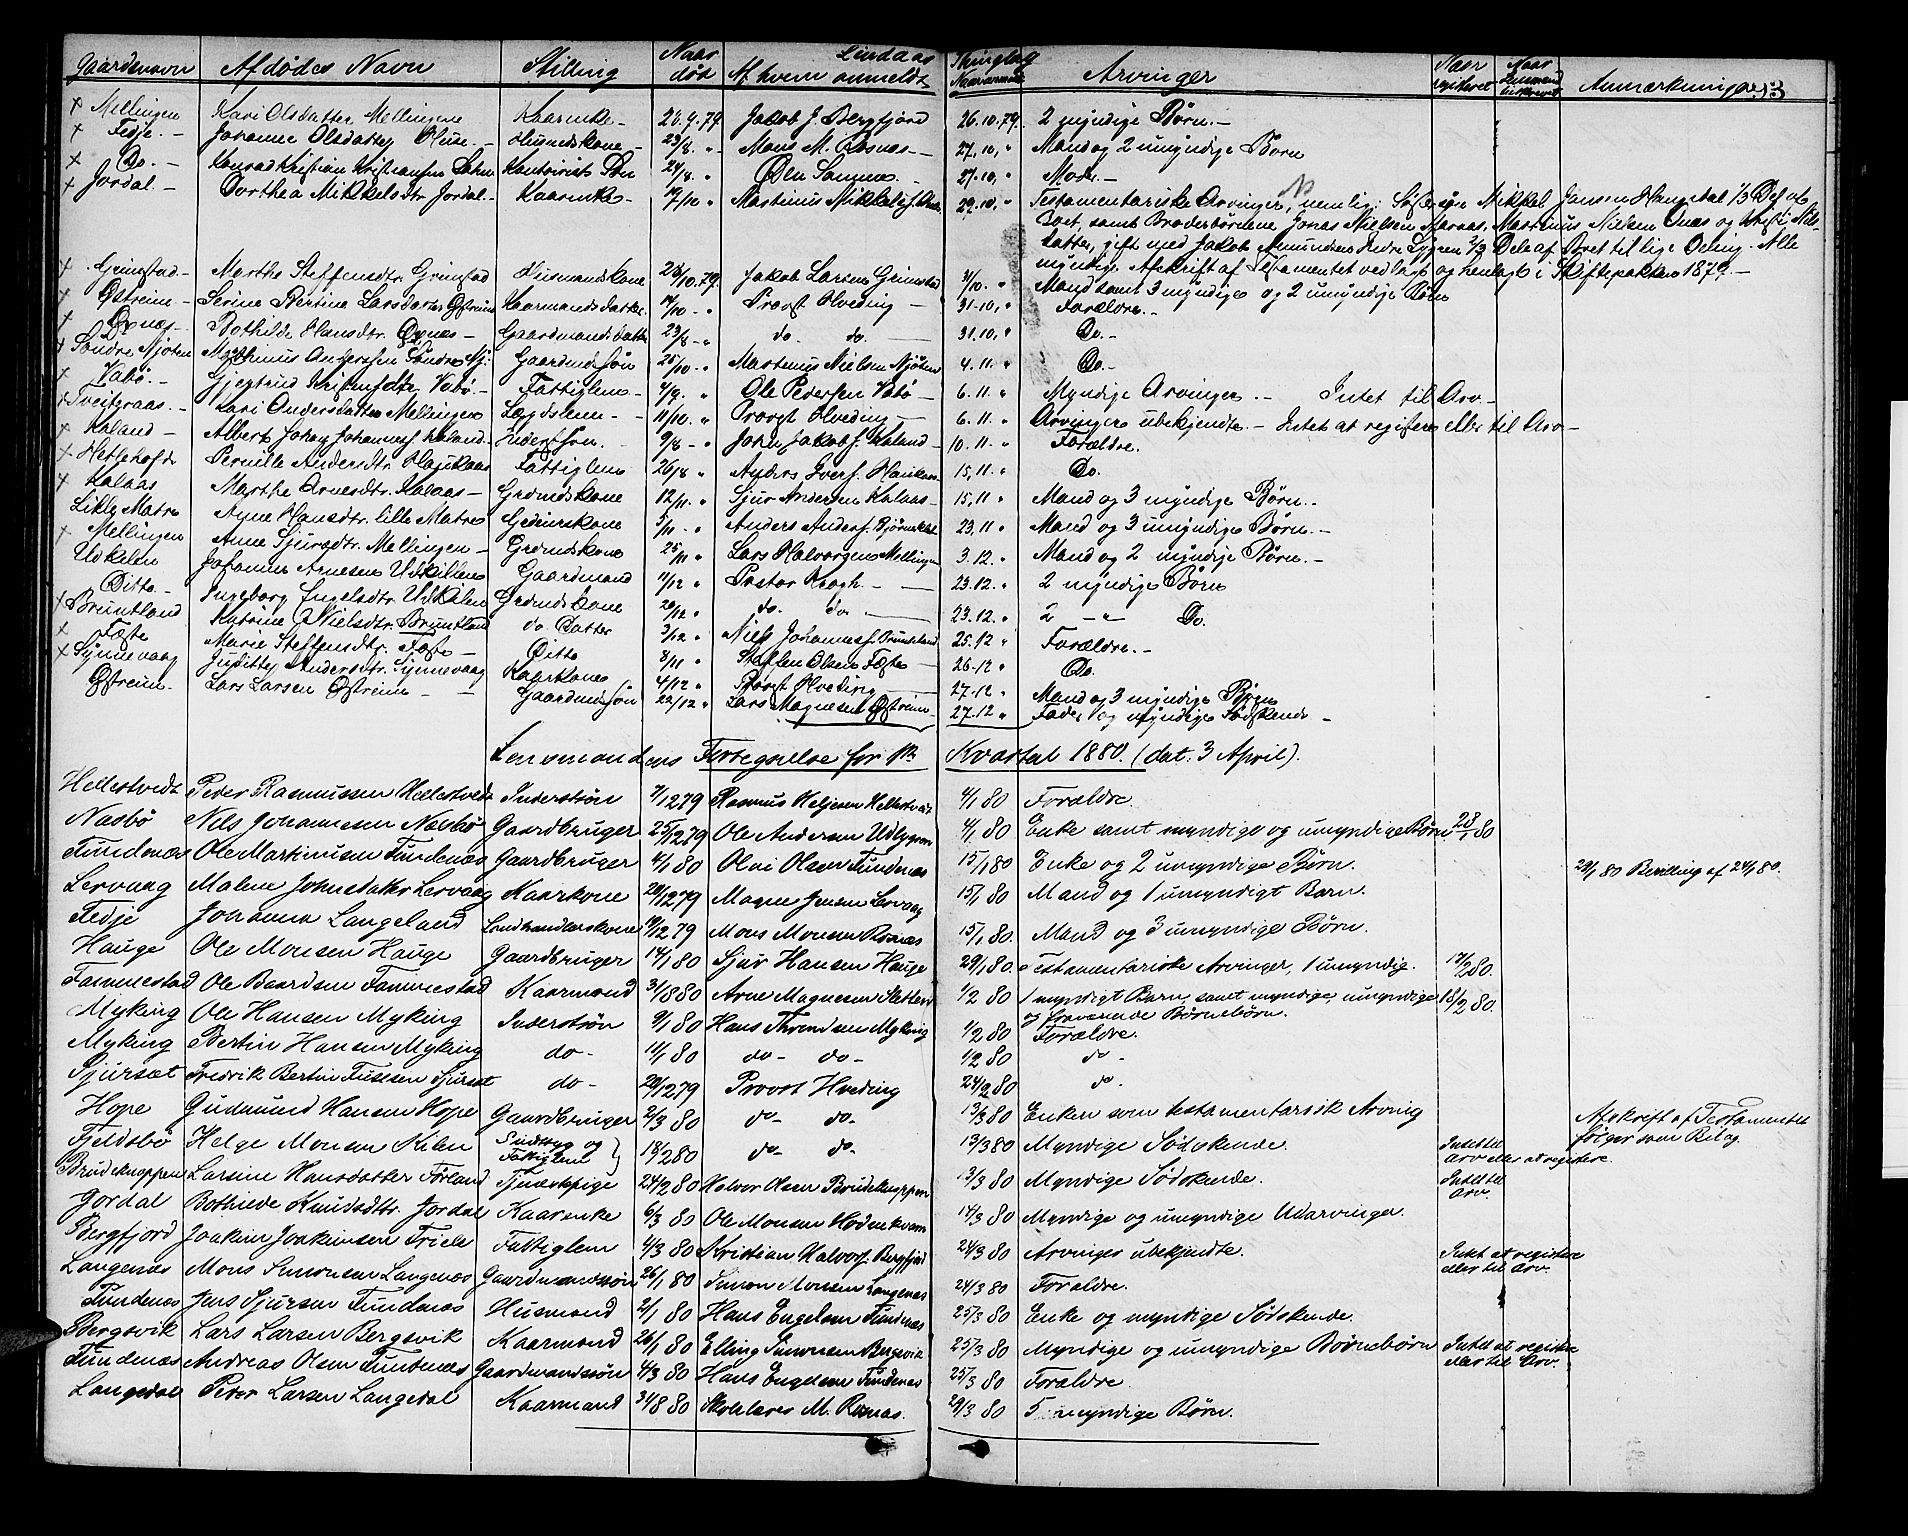 Lindaas Thinglag
93
Gaardenavn Afdødes Navn Stilling Naar død Af hvem anmeldt Naar anmeldt Arvinger Naar registeret Naar Anmærkninger
x Mellingen Kari Olsdatter Mellingen Kaarenke - 79 Jakob J. Bergfjord 26.10.79. 2 myndige Børn. -
x Fedje. - Johanne Olsdatter Huse. - Husmdskone - 23/8. " Mons M. Rosnæs - 27.10, " Mand og 2 umyndige Børn
x Do. - Konrad Kristian Kristiansen Søn 24/8. " 27.10, " Moder -
x Jordal. - Dorthea Mikkelsdtr Jordal. - Kaarenke - 19/10 " Martinus Mikkels 29.10, " Testamentariske Arvinger, nemlig: Mikkel Jansen 1/3 Del af
Boet, samt Broderbørnene Jonas Nielsen Martinus Nielsen og Nils-
datter, gift med Jakob Amundsen Indre Lygren 2/3 Dele af Boet til lige Deling. Alle
myndige. Afskrift af Testamentet vedlagt og henlagt i Skiftepakken 1879. -
x Grimstad - Marthe Steffensdtr. Grimstad Husmandskone 10.79. Jakob Larsen Grimstad 31/10. " Mand samt 3 myndige og 2 umyndige Børn
x Østreim - Serine Bertine Larsdatter Østreim Kaarmandsdatter 14/10 - " Provst Hveding - 31.10, " Forældre. -
x Oxnæs - Bothilde Hansdtr. Oxnæs - Gaardmandsdatter 23/8 - " do. do. 31.10, " Do. -
x Søndre Njøten Andersen Søndre Nj: Gaardmdssøn 25/10 - " Martinus Nielsen Njøten 4.11. " Do. -
x Vabø. - Vabø - Fattiglem - 4/9. " Ole Pedersen Vabø - 6.11. " Myndige Arvinger. - Intet til Arv. -
x Tveitgraas. - Kari Andersdatter Mellingen Lægdslem - 11/10. " Provst Hveding - 6.11. " Arvinger ubekjendte - Intet at registere eller til Arv -
x Kaland - Albert Johan Johannes. Kaland. Inderstsøn. - 9/8 - " John Jakobs. Kaland - 10.11. " Forældre.
x Pernille Andersdtr. Fattiglem 26/8 " 15.11. " Do.
x Kalaas Marthe Arnesdtr. Kalaas - Grdmdskone 12/11. " Sjur Andersen Kalaas - 15.11 " Mand og 3 myndige Børn. -
Lille Matre Anne Hansdtr. Lille Matre 5/11 - " Anders Anders. 23.11 " Mand og 3 umyndige Børn. -
x Mellingen Anne Sjursdtr. Mellingen - Grdmdskone 25/11 " Lars Halvorsen Mellingen 3.12. " Mand og 2 myndige Børn. -
Udkilen Johannes Arnesen Udkilen Gaardmand 11/12 " Pastor Krogh. - 23.12. " 2 myndige Børn
Ditto - Ingeborg Engelsdtr. Udkilen Grdmdskone 20/12 " do. do. 23.12. " 2 - " - Do.
x Bruntland Katrine Nielsdtr. Bruntland do Datter 3/12 " Niels Johannes. Bruntland 25.12 " Forældre. -
x Fæste Marie Steffensdtr. Fæste - Ditto 8/11 " Steffen Olsen Fæste 26.12 " Do.
x Synnevaag Judithe Andersdtr. Synnevaag Kaarkone 4/12 " Provst Hveding 27.12 " Mand og 3 myndige Børn
Østreim. Lars Larsen Østreim - Gaardmdssøn 22/12 " Lars Magnesen Østreim - 27.12 " Fader og myndige Sødskende -
Lensmandens Fortegnelse for 1ste Kvartal 1880. (dat. 3 April).
Hellestvedt Peder Rasmussen Hellestvedt Inderstsøn 7/12 79 Rasmus Heljesen Hellestvedt 4/1 80 Forældre
Næsbø Nils Johannesen Næsbø Gaardbruger 25/12 79 Ole Andersen Udlygren 4/1 80 Enke samt myndige og umyndige Børn. 28/1 80
Fundenæs Ole Martinusen Fundenæs Gaardbruger 4/1 80 Olai Olsen Fundenæs 15/1 80 Enke og 2 umyndige Børn. 29/1 80 Bevilling af 24/1 80.
Lervaag Malene Johnsdatter Lervaag Kaarkone 20/12 79 Magne Jensen Lervaag 15/1 80 Mand og 1 umyndigt Barn.
Fedje Johanna Langeland Landhandlerskone 19/12 79 Mons Monsen Rosnæs 15/1 80. Mand og 3 umyndige Børn.
Hauge Ole Monsen Hauge Gaardbruger 14/1 80 Sjur Hansen Hauge 29/1 80. Testamentariske Arvinger, 1 umyndig. 17/2 80.
Fammestad Ole Baardsen Fammestad Kaarmand 31/8 80 Arne Magnesen Sletten 1/2 80 1 myndigt Barn, samt myndige, umyndige 18/2 80.
og fraværende Børnebørn.
Myking Ole Hansen Myking Inderstsøn 9/1 80 Hans Thronsen Myking 1/2 80 Forældre.
Myking Bertin Hansen Myking do - 11/1 80 do - do - 1/2 80 do -
Sjursæt Fredrik Bertin Fusesen Sjursæt do - 20/12 79 Provst Hveding 24/2 80 do -
Hope Gudmund Hansen Hope Gaardbruger 2/3 80 do - do - 13/3 80 Enken som testamentarisk Arving Afskrift af Testamentet
følger som Bilag
Fjeldsbø Helge Monsen Kilen Sindssyg og Fattiglem } 18/2 80 do - do - 13/3 80 Myndige Sødskende. Intet til Arv eller at registere.
Brudeknappen Larsine Hansdatter Førland Tjenestpige 24/2 80 Halvor Olsen Brudeknappen 13/3 80 Myndige Sødskende. Intet til Arv.
Jordal Bothilde Knudsdtr. Jordal Kaarenke 6/3 80 Ole Monsen Hodnekvam 14/3 80 Myndige og umyndige Udarvinger.
Bergfjord Joakim Joakimsen Friele Fattiglem 4/3 80 Kristian Halvors. Bergfjord 24/3 80 Arvinger ubekjendte. Intet at registere
eller til Arv.
Langenæs Mons Simonsen Langenæs Gaardmandssøn 26/1 80 Simon Monsen Langenæs 24/3 80 Forældre.
Fundenæs Jens Sjursen Fundenæs Husmand 2/1 80 Hans Engelsen Fundenæs 25/3 80 Enke og myndige Sødskende.
Bergsvik Lars Larsen Bergsvik Kaarmand 26/1 80 Elling Simonsen Bergsvik 25/3 80 Myndige og umyndige Børnebørn Intet at registere
eller til Arv.
Fundenæs Andreas Olsen Fundenæs Gaardmandssøn 4/3 80 Hans Engelsen Fundenæs 25/3 80 Forældre.
Langedal Peder Larsen Langedal Kaarmand 31/8 80 Skolelærer M. Rosnæs. 29/3 80 5 umyndige Børn.